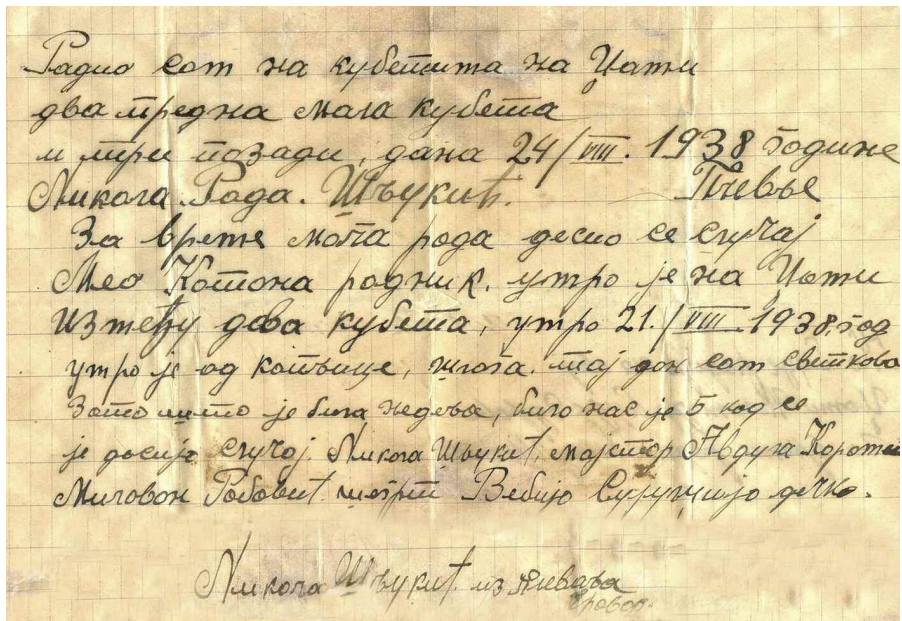 Радио сам на кубетима на Џами
два предна мала кубета
и три позади, дана 24/VIII. 1938 године
Никола Рада. Шљукић. Пљевље
За време мога рада десио се случај
Мео Катана радник. умро је на Џами
између два кубета, умро 21./VIII 1938. год
умро је од капљице, шлога. тај дан сам светкова
зато што је била недеља, било нас је 5 кад се
је десијо случај. Никола Шљукић, мајстор Авдула
Миловон Робовић шегрт Вебијо дечко.
Никола Шљукић из Пљеваља